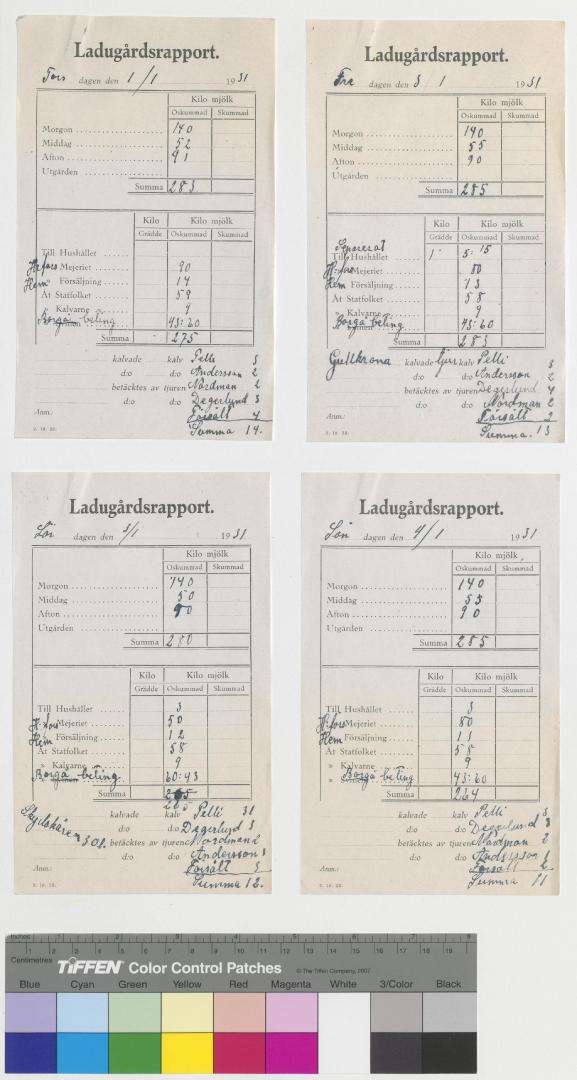 Ladugårdsrapport.
Tors dagen den 1/1 1931
Kilo mjölk
Oskummad Skummad
Morgon 140
Middag 52
Afton 91
Utgården
Summa 283
Kilo Kilo mjölk
Grädde Oskummad Skummad
Till Hushållet
H:fors Mejeriet 90
Hem Försäljning 14
Åt Statfolket 59
» Kalvarne 9
Borgå beting 43:60
Summa 275
kalvade kalv Pelli 3
d:o d:o Andersson 2
betäcktes av tjuren Nordman 2
d:o d:o Degerlund 3
Försålt 4
Anm.: Summa 14.
Ladugårdsrapport.
Fre dagen den 1 1931
Kilo mjölk
Oskummad Skummad
Morgon 140
Middag 55
Afton 90
Utgården
Summa 285
Kilo Kilo mjölk
Grädde Oskummad Skummad
Separerat
Till Hushållet 1 5:15
H:fors Mejeriet 80
Hem Försäljning 13
Åt Statfolket 58
» Kalvarne 9
Borgå beting 43:60
Summa 283
Gullkrona kalvade tjur kalv Pelli 3
d:o d:o Andersson 2
betäcktes av tjuren Degerlund 4
d:o d:o Nordman 2
Försålt 2
Anm.: Summa. 13
Ladugårdsrapport.
Lör dagen den 3/1 1931
Kilo mjölk
Oskummad Skummad
Morgon 140
Middag 50
Afton 90
Utgården
Summa 280
Kilo Kilo mjölk
Grädde Oskummad Skummad
Till Hushållet 3
H:fors Mejeriet 50
Hem Försäljning 12
Åt Statfolket 58
» Kalvarne 9
Borgå beting 60:43
Summa
265
kalvade Pelli 31
d:o Degerlund 3
30l. betäcktes av tjuren Nordman 2
d:o d:o Andersson 3
Försålt 3
Anm.: Summa 12.
Ladugårdsrapport.
Sön dagen den 4/1 1931
Kilo mjölk
Oskummad Skummad
Morgon 140
Middag 55
Afton 90
Utgården
Summa 285
Kilo Kilo mjölk
Grädde Oskummad Skummad
Till Hushållet 3
H:fors Mejeriet 80
Hem Försäljning 11
Åt Statfolket 58
» Kalvarne 9
Borgå beting 43:60
Summa 264
kalvade Pelli 3
d:o Degerlund 3
betäcktes av tjuren Nordman 2
d:o d:o Andersson
Försålt 2
Anm.: Summa 11
Inches 1 2 3 4 5 6 7 8
Centimetres 1 2 3 4 5 6 7 8 9 10 11 12 13 14 15 16 17 18 19
TIFFEN Color Control Patches © The Tiffen Company, 2007
Blue Cyan Green Yellow Red Magenta White 3/Color Black